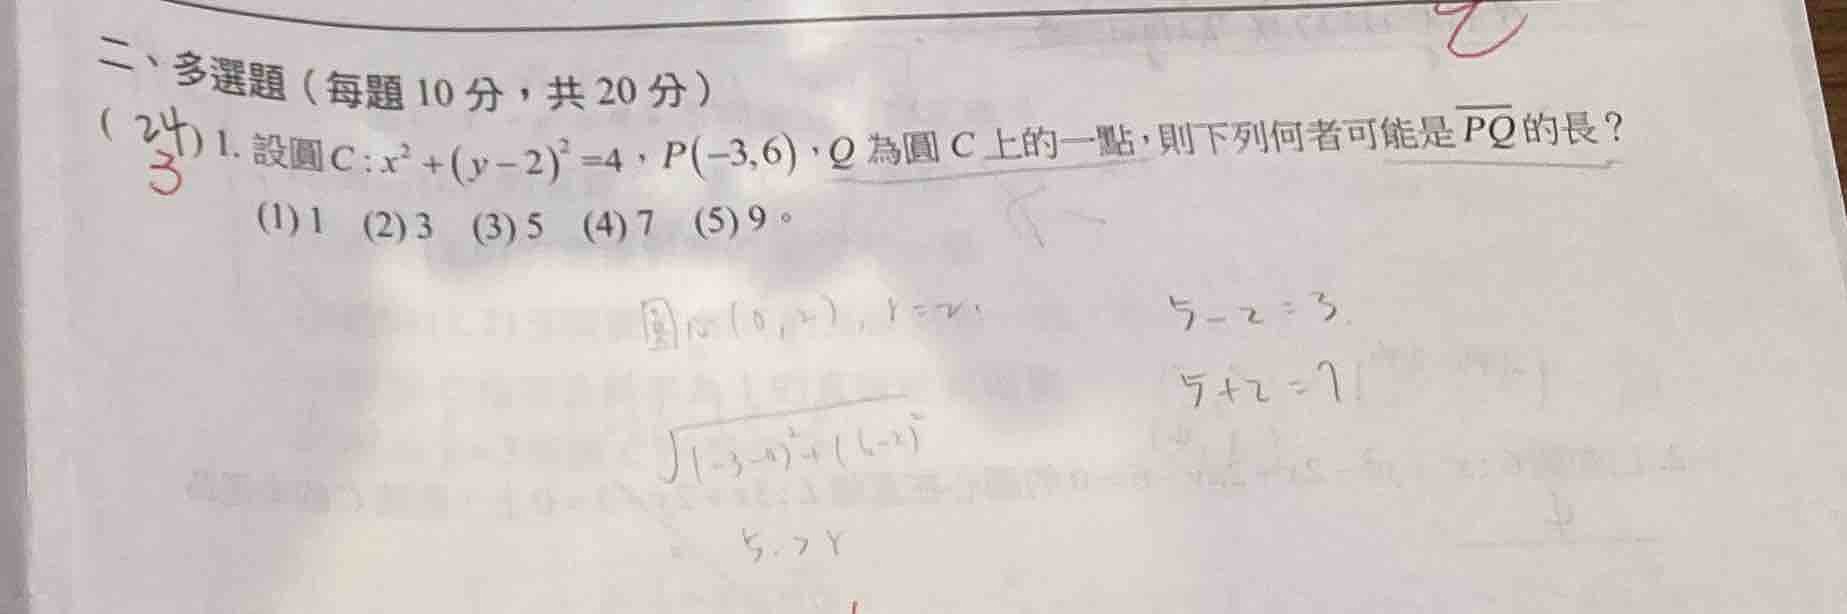 二、多選題（每題 10 分，共 20 分）
( 24 ) 1. 設圓 C : x² + (y − 2)² = 4，P(−3,6)，Q 為圓 C 上的一點，則下列何者可能是 PQ 的長？
3
(1) 1 (2) 3 (3) 5 (4) 7 (5) 9。
圓心 (0,2), r=2.
5-2=3.
5+2=7
√(-3-0)²+(6-2)²
5. > r